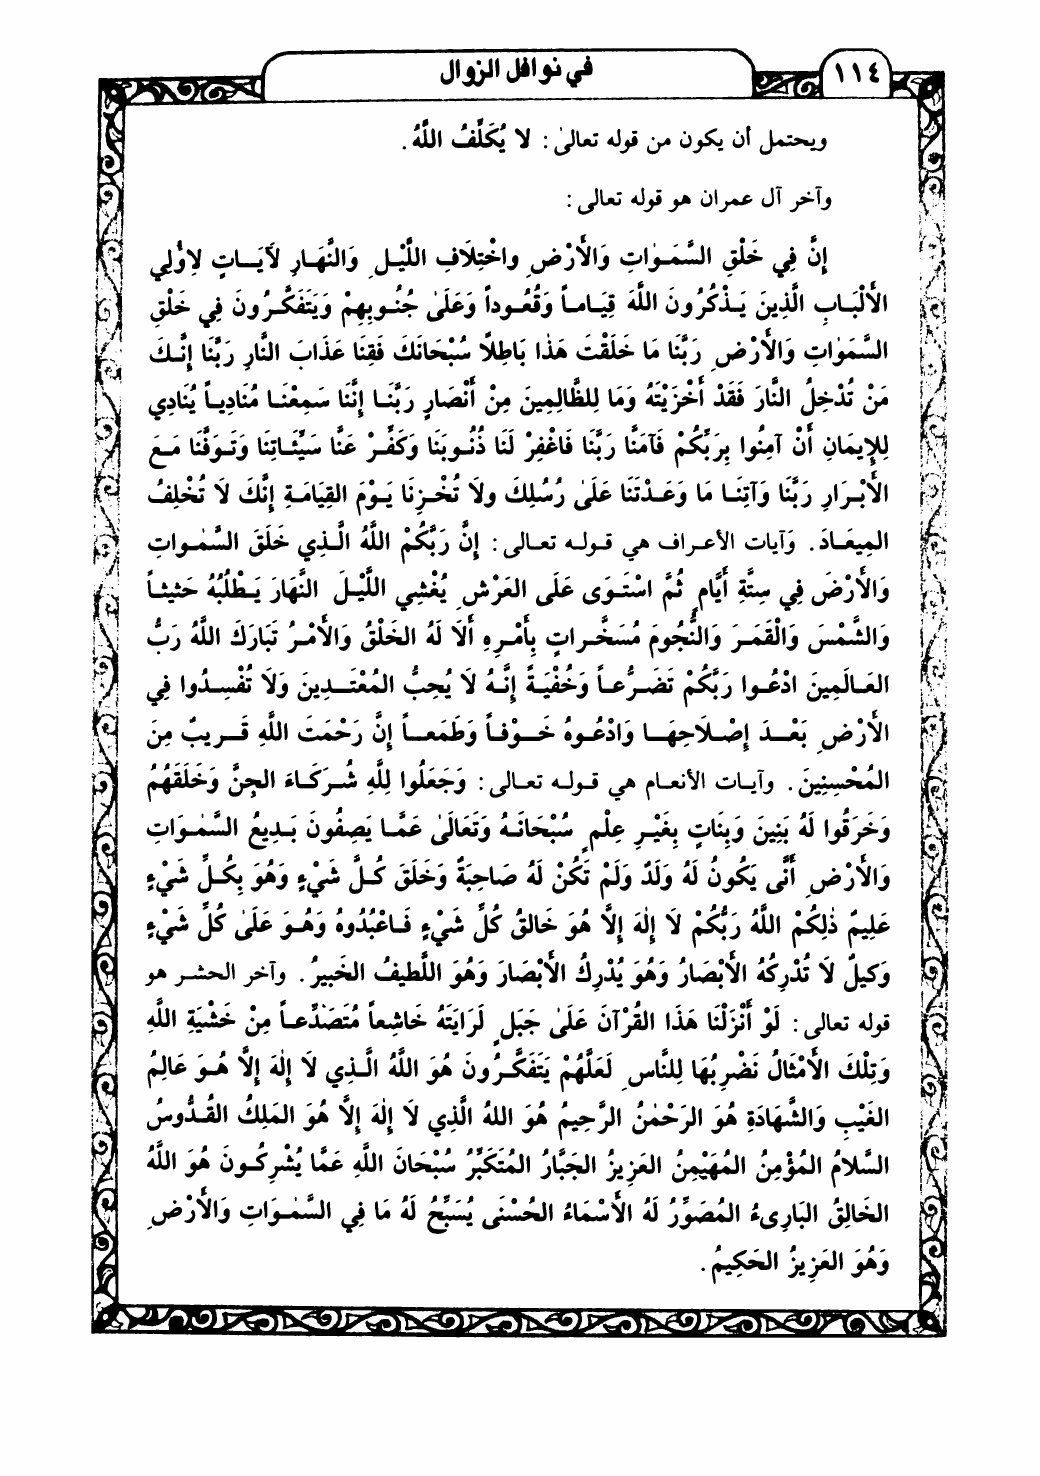 ١١٤
في نوافل الزوال
ويحتمل أن يكون من قوله تعالىٰ: لا يُكَلِّفُ اللَّهُ.
وآخر آل عمران هو قوله تعالى:
إِنَّ فِي خَلْقِ السَّمَـوٰاتِ وَالأَرْضِ واخْتِلَافِ اللَّيْـلِ وَالنَّهَـارِ لَآيَـاتٍ لِاوُلي
الأَلْبَـابِ الَّذِينَ يَـذْكُرُونَ اللَّهَ قِيَـامـاً وَقُعُـوداً وَعَلَىٰ جُنُـوبِهِمْ وَيَتَفَكَّـرُونَ فِي خَلْقِ
السَّمَوٰاتِ وَالأَرْضِ رَبَّنَا مَا خَلَقْتَ هَذٰا بَاطِلاً سُبْحَانَكَ فَقِنَا عَذَابَ النَّارِ رَبَّنَا إِنَّـكَ
مَنْ تُدْخِلُ النَّارَ فَقَدْ أَخْزَيْتَهُ وَمَا لِلظَّالِمِينَ مِنْ أَنْصَارٍ رَبَّنَـا إِنَّنَا سَمِعْنَـا مُنَادِيـاً يُنَادِي
لِلإِيمَانِ أَنْ آمِنُوا بِرَبِّكُمْ فَآمَنَّا رَبَّنَا فَاغْفِرْ لَنَا ذُنُـوبَنَا وَكَفِّـرْ عَنَّا سَيِّئَـاتِنَا وَتَـوَفَّنَا مَـعَ
الأَبْـرَارِ رَبَّنَا وَآتِنَـا مَا وَعَـدْتَنَا عَلَىٰ رُسُلِكَ ولَا تُخْـزِنَا يَـوْمَ القِيَامَـةِ إِنَّكَ لَا تُخْلِفُ
المِيعَـادَ. وَآيات الأعـراف هي قـولـه تعـالى: إِنَّ رَبَّكُمْ اللَّهُ الَّـذِي خَلَقَ السَّمٰـواتِ
وَالأَرْضَ فِي سِتَّةِ أَيَّامٍ ثُمَّ اسْتَـوَى عَلَى العَرْشِ يُغْشِي اللَّيْـلَ النَّهَارَ يَـطْلُبُهُ حَثِيثـاً
وَالشَّمْسَ وَالْقَمَـرَ وَالنُّجُومَ مُسَخَّـراتٍ بِأَمْـرِهِ أَلَا لَهُ الخَلْقُ وَالأَمْـرُ تَبَارَكَ اللَّهُ رَبُّ
العَـالَمِينَ ادْعُـوا رَبَّكُمْ تَضَـرُّعـاً وَخُفْيَـةً إِنَّـهُ لَا يُحِبُّ المُعْتَـدِينَ وَلَا تُفْسِـدُوا فِي
الأَرْضِ بَعْـدَ إِصْـلَاحِهَـا وَادْعُـوهُ خَـوْفـاً وَطَمَعـاً إِنَّ رَحْمَتَ اللَّهِ قَـرِيبٌ مِنَ
المُحْسِنِينَ. وآيـات الأنعـام هي قـولـه تعـالى: وَجَعَلُوا لِلَّهِ شُـرَكَـاءَ الجِنَّ وَخَلَقَهُمُ
وَخَرَقُوا لَهُ بَنِينَ وَبِنَاتٍ بِغَيْـرِ عِلْمٍ سُبْحَانَـهُ وَتَعَالَىٰ عَمَّـا يَصِفُونَ بَـدِيعُ السَّمٰـوَاتِ
وَالأَرْضِ أَنَّى يَكُونُ لَهُ وَلَدٌ وَلَمْ تَكُنْ لَهُ صَاحِبَةٌ وَخَلَقَ كُـلَّ شَيْءٍ وَهُوَ بِكُـلِّ شَيْءٍ
عَلِيمٌ ذٰلِكُمْ اللَّهُ رَبُّكُمْ لَا إِلٰهَ إِلَّا هُوَ خَالقُ كُلِّ شَيْءٍ فَـاعْبُدُوهُ وَهُـوَ عَلَىٰ كُلِّ شَيْءٍ
وَكيلٌ لَا تُدْرِكُهُ الأَبْصَارُ وَهُوَ يُدْرِكُ الأَبْصَارَ وَهُوَ اللَّطيفُ الخَبيرُ. وآخر الحشـر هو
قوله تعالى: لَوْ أَنْزَلْنَا هَذَا القُرْآنَ عَلَىٰ جَبَلٍ لَرَايَتَهُ خَاشِعاً مُتَصَدِّعـاً مِنْ خَشْيَةِ اللَّهِ
وَتِلْكَ الأَمْثَالُ نَضْرِبُهَا لِلنَّاسِ لَعَلَّهُمْ يَتَفَكَّـرُونَ هُوَ اللَّهُ الَّـذِي لَا إِلٰهَ إِلَّا هُـوَ عَالِمُ
الغَيْبِ وَالشَّهَادَةِ هُوَ الرَحْمٰنُ الرَّحِيمُ هُوَ اللهُ الَّذِي لَا إِلٰهَ إِلَّا هُوَ المَلِكُ القُـدُّوسُ
السَّلامُ المُؤْمِنُ المُهَيْمِنُ العَزِيزُ الجَبَّارُ المُتَكَبِّرُ سُبْحَانَ اللَّهِ عَمَّا يُشْرِكُـونَ هُوَ اللَّهُ
الخَالِقُ البَارِىءُ المُصَوِّرُ لَهُ الأَسْمَاءُ الحُسْنَى يُسَبِّحُ لَهُ مَا فِي السَّمٰـوَاتِ وَالأَرْضِ
وَهُوَ العَزِيزُ الحَكِيمُ.